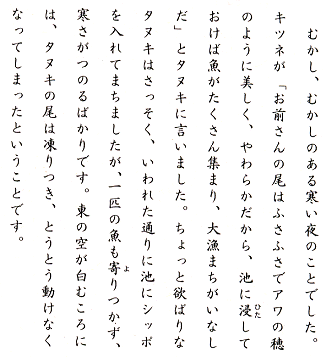 むかし、むかしのある寒い夜のことでした。
キツネが　「お前さんの尾はふさふさでアワの穂
のように美しく、やわらかだから、池に浸して
おけば魚がたくさん集まり、大漁まちがいなし
だ」とタヌキに言いました。ちょっと欲ばりな
タヌキはさっそく、いわれた通りに池にシッポ
を入れてまちましたが、一匹の魚も寄りつかず、
寒さがつのるばかりです。東の空が白むころに
は、タヌキの尾は凍りつき、とうとう動けなく
なってしまったということです。
ひた
よ